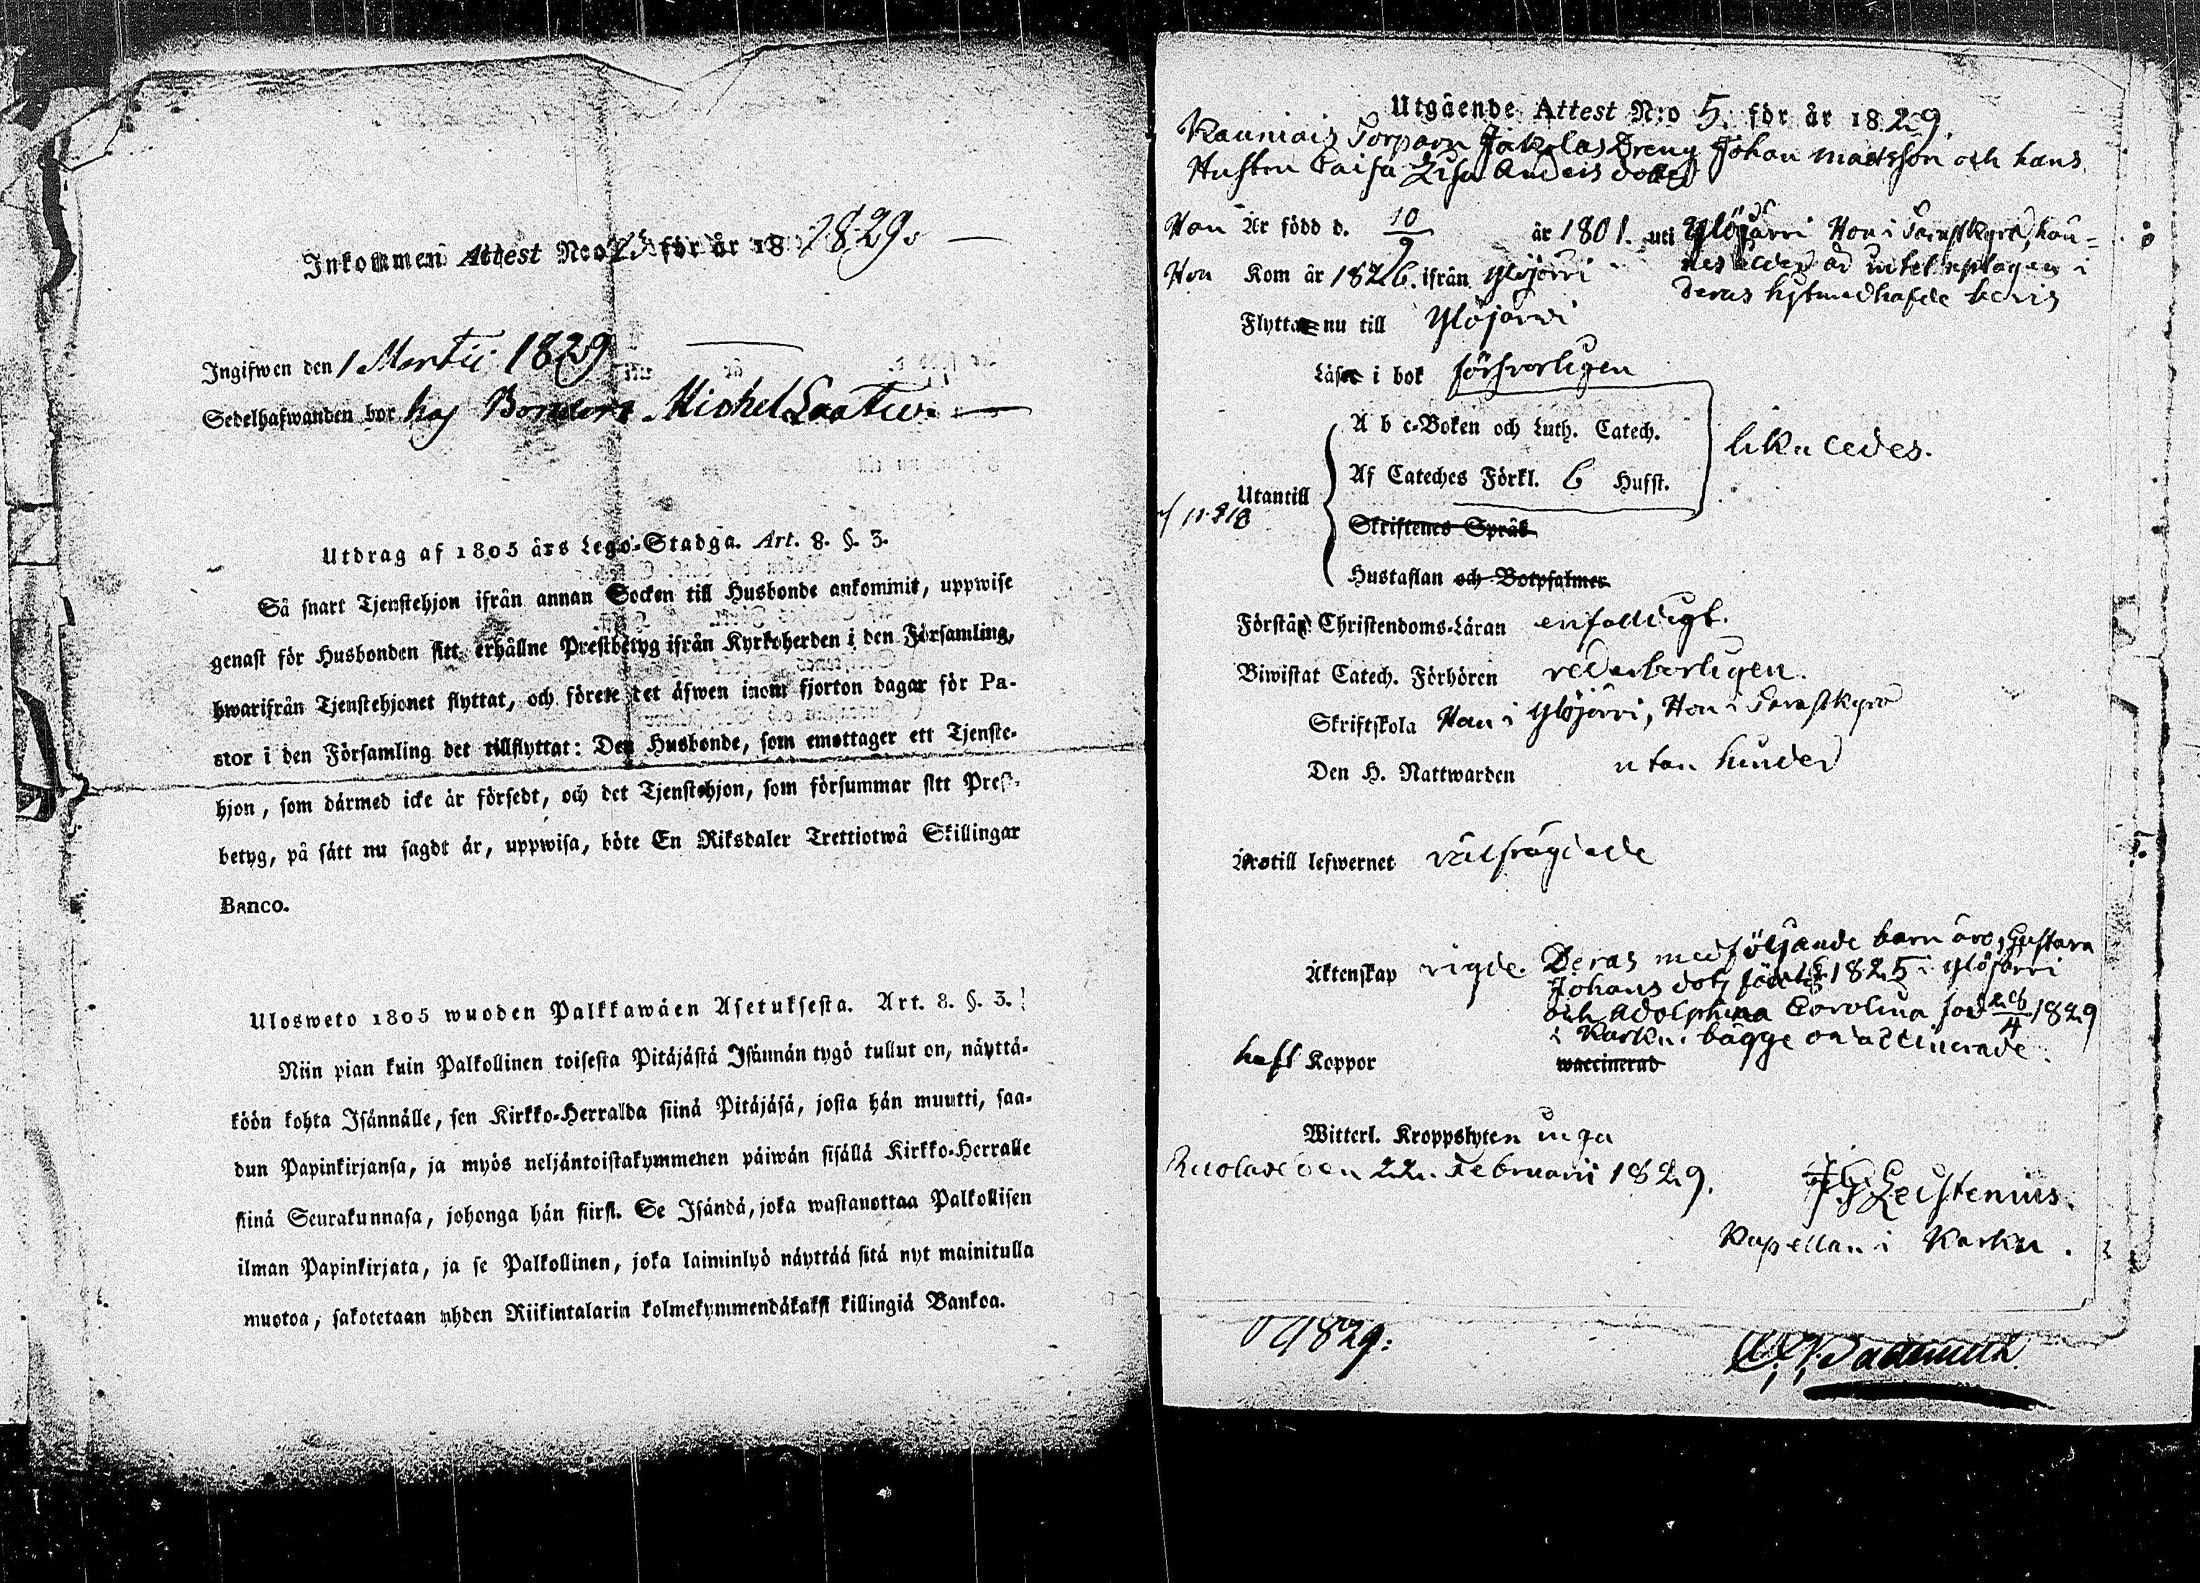 Inkommen Attest N:o 25 för år 18 1829.
Ingifwen den 1 Martii 1829
Sedelhafwanden bor hos Bonden Michel Laatu
Utdrag af 1805 års Lego-Stadga. Art. 8. §. 3.
Så snart Tjenstehjon ifrån annan Socken till Husbonde ankommit, uppwise
genast för Husbonden sitt erhållne Prestbetyg ifrån Kyrkoherden i den Församling,
hwarifrån Tjenstehjonet flyttat, och förete det äfwen inom fjorton dagar för Pa-
stor i den Församling det tillflyttat: Den Husbonde, som emottager ett Tjenste-
hjon, som därmed icke är försedt, och det Tjenstehjon, som försummar sitt Prest-
betyg, på sätt nu sagdt är, uppwisa, böte En Riksdaler Trettiotwå Skillingar
Banco.
Ulosweto 1805 wuoden Palkkawäen Asetuksesta. Art. 8. §. 3.
Niin pian kuin Palkollinen toisesta Pitäjästä Isännän tygö tullut on, näyttä-
köön kohta Isännälle, sen Kirkko-Herralda siinä Pitäjäsä, josta hän muutti, saa-
dun Papinkirjansa, ja myös neljäntoistakymmenen päiwän sisällä Kirkko-Herralle
siinä Seurakunnasa, johonga hän siirsi. Se Isändä, joka wastanottaa Palkollisen
ilman Papinkirjata, ja se Palkollinen, joka laiminlyö näyttää sitä nyt mainitulla
muotoa, sakotetaan yhden Riikintalarin kolmekymmendäkaksi killingiä Bankoa.
Utgående Attest N:o 5. för år 1829.
Torparn Jakolas Dreng Johan Mattsson och hans
Hustru Caisa Lisa Andersdotter
Han Är född d. 10/9 år 1801. uti Ylöjärvi Hon i
Hon Kom år 1826. ifrån Ylöjärvi
deras
Flytta nu till Ylöjärvi
Läser i bok försvarligen
A b c-Boken och Luth. Catech.
Af Cateches Förkl. 6 Hufst. lika ledes.
Utantill
Skriftenes Språk
Hustaflan och Botpsalmer
Förstår Christendoms-Läran enfaldigt.
Biwistat Catech. Förhören vederbörligen.
Skriftskola Han i Ylöjärvi, Hon i
Den H. Nattwarden utan hinder
Äro till lefwernet välfrägdade
Äktenskap vigde. Deras medföljande barn äro, Gustava
Johans dotz född 1825 i Ylöjärvi
och Adolphina Carolina föd 26/4 1829
i Karku. bägge vaccinerade.
haft Koppor waccinerad
Witterl. Kroppslyten inga
den 22. Februarii 1829.
Kapellan i Karku.
1829.